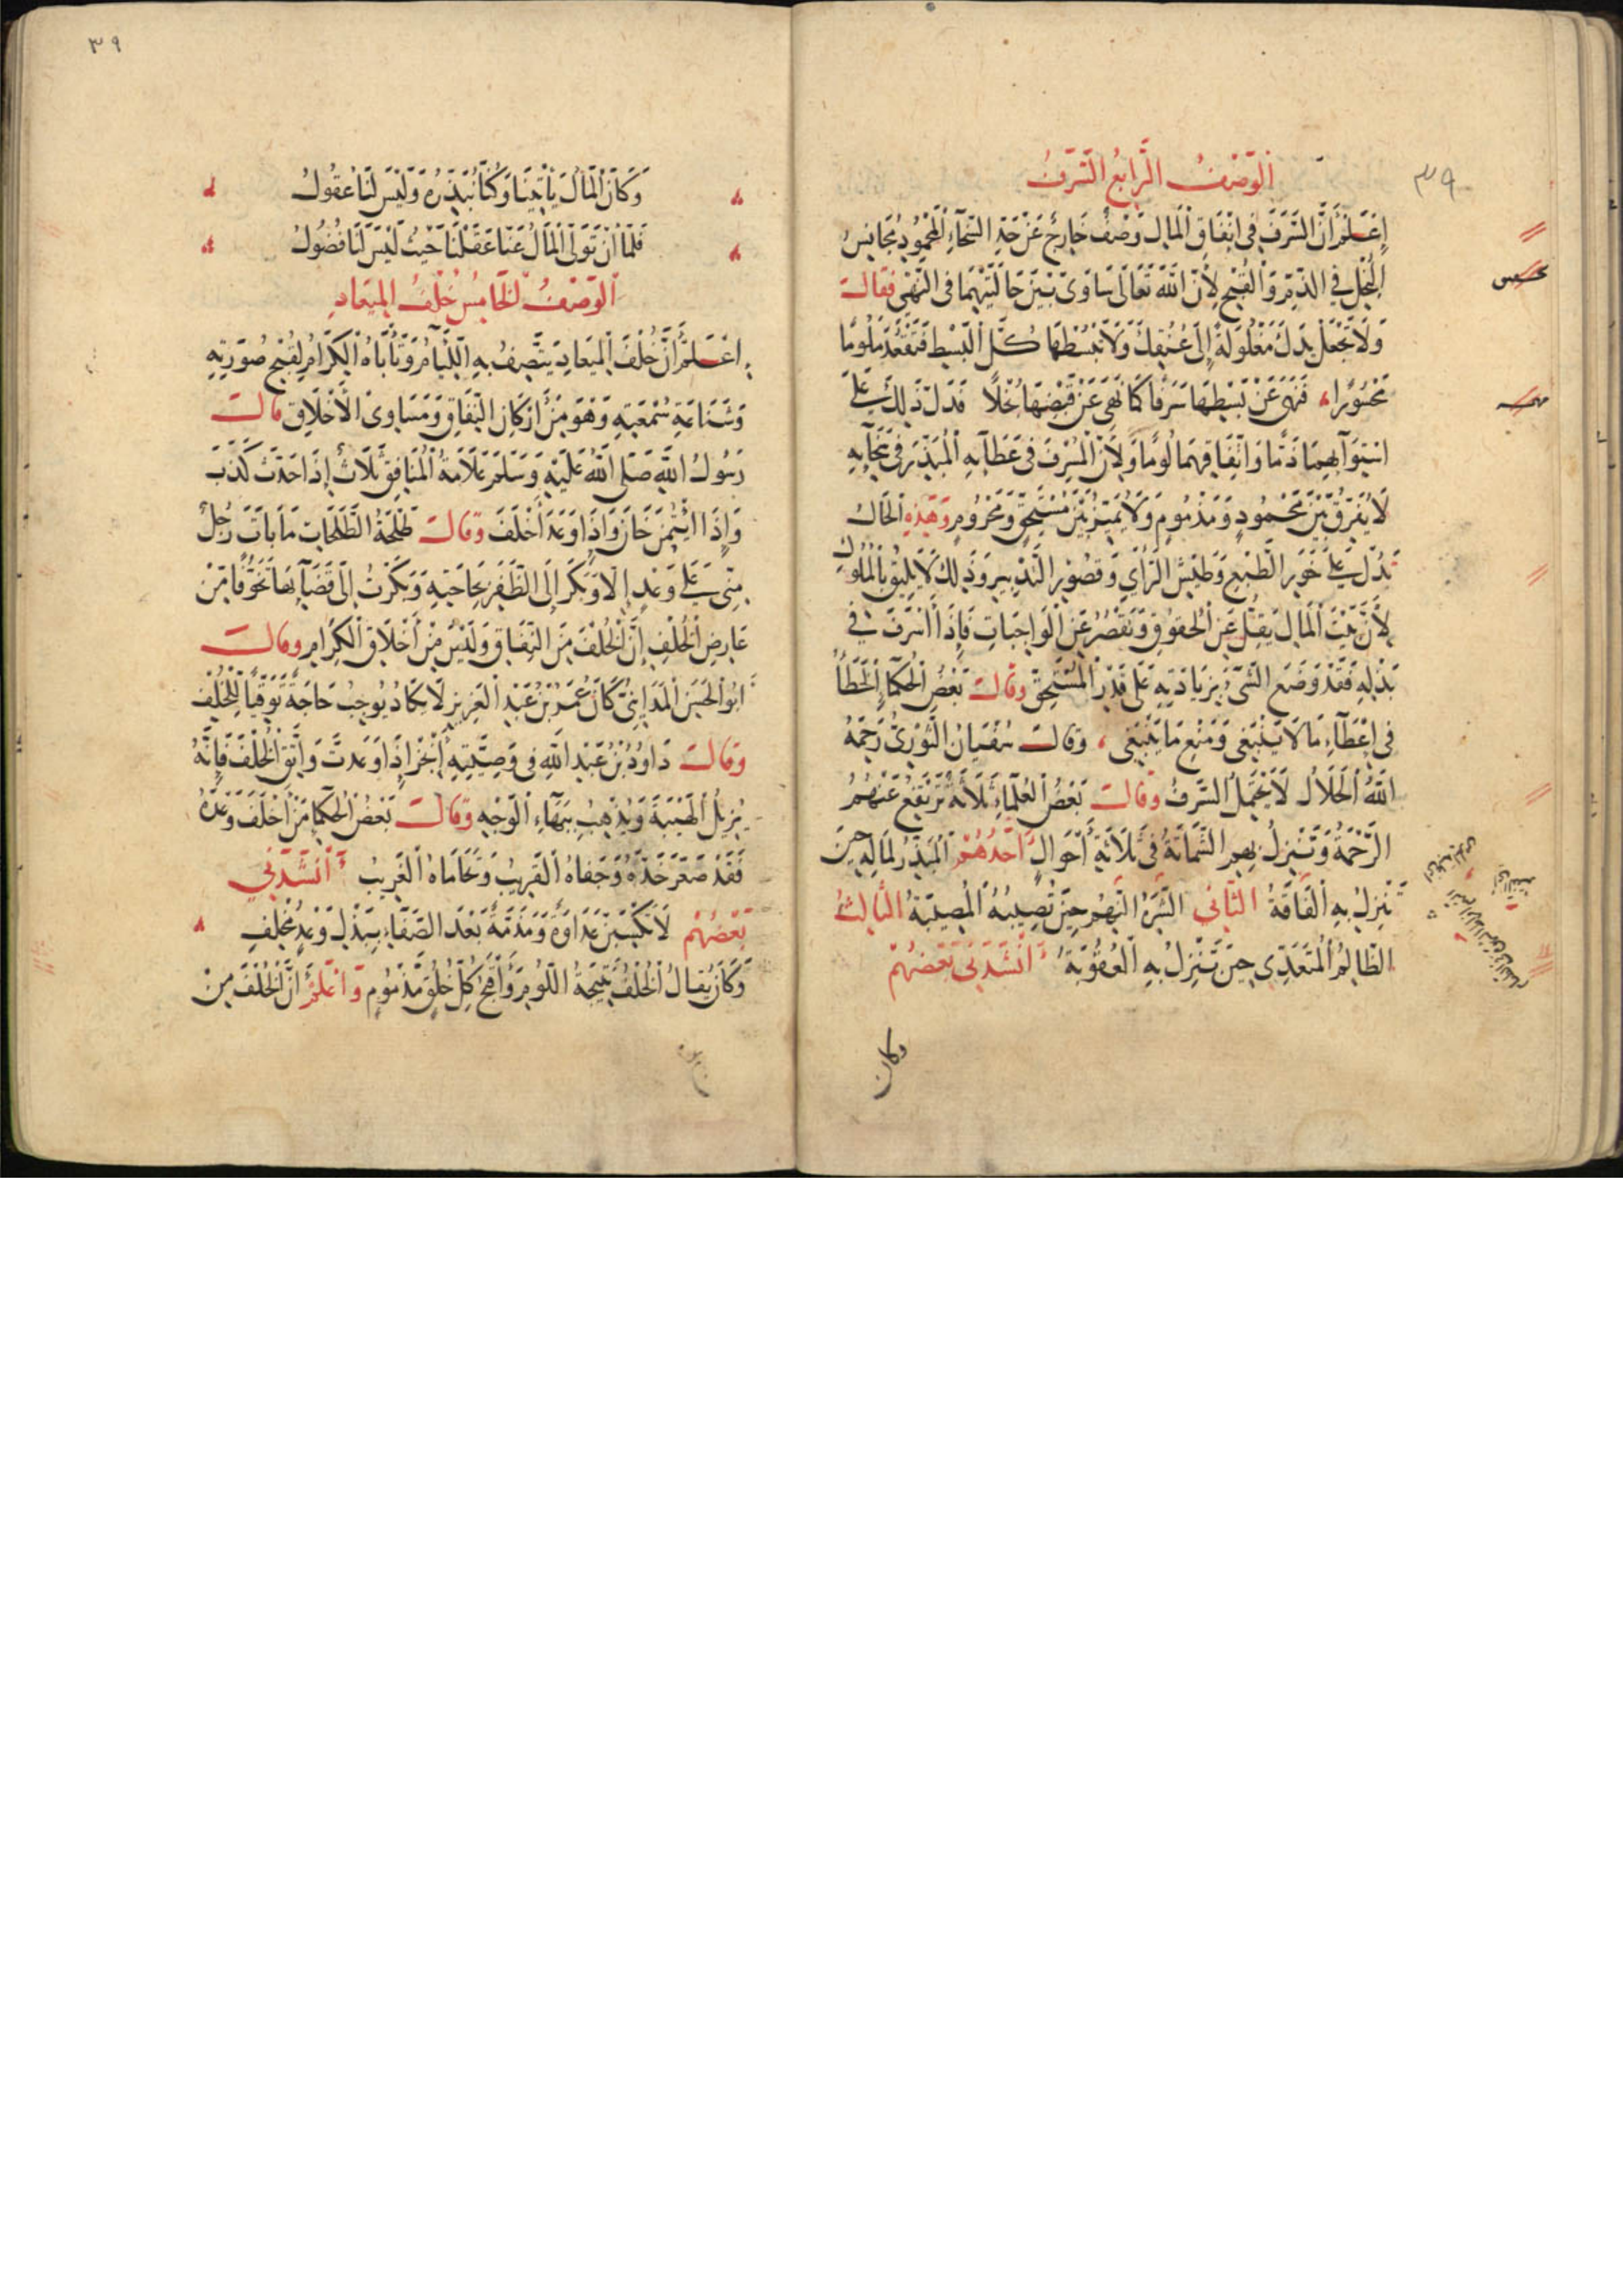 ٣٩
الوصف الرابع السرف
اِعْلَمْ أَنَّ السَّرَفَ فِي اِنْفَاقِ الْمَالِ وَصْفٌ خَارِجٌ عَنْ حَدِّ السَّخَاءِ الْمَحْمُودِ مُجَانِسُ
الْبُخْلِ فِي الذَّمِّ وَالْقُبْحِ لِأَنَّ اللّٰهَ تَعَالَى سَاوَى بَيْنَ حَالَتَيْهِمَا فِي النَّهْيِ فَقَالَ
وَلَا تَجْعَلْ يَدَكَ مَغْلُولَةً إِلَى عُنُقِكَ وَلَا تَبْسُطْهَا كُلَّ الْبَسْطِ فَتَقْعُدَ مَلُومًا
مَحْسُورًا فَنَهَى عَنْ بَسْطِهَا سَرَفًا كَمَا نَهَى عَنْ قَبْضِهَا بُخْلًا فَدَلَّ ذَلِكَ عَلَى
اسْتِوَآئِهِمَا ذَمًّا وَاتِّفَاقِهِمَا لُومًا وَلِأَنَّ الْمُسْرِفَ فِي عَطَآئِهِ الْمُبَذِّرَ فِي سَخَآئِهِ
لَا يُفَرِّقُ بَيْنَ مَحْمُودٍ وَمَذْمُومٍ وَلَا يُمَيِّزُ بَيْنَ مُسْتَحِقٍّ وَمَحْرُومٍ وَهَذِهِ الْحَالُ
تَدُلُّ عَلَى خَوَرِ الطَّبْعِ وَطَيْشِ الرَّأْيِ وَقُصُورِ التَّدْبِيرِ وَذَلِكَ لَا يَلِيقُ بِالْمُلُوكِ
لِأَنَّ بَيْتَ الْمَالِ يَقِلُّ عَنِ الْحُقُوقِ وَيَقْصُرُ عَنِ الْوَاجِبَاتِ فَإِذَا أَسْرَفَ فِي
بَذْلِهِ فَقَدْ وَضَعَ الشَّيْءَ بِزِيَادَتِهِ عَلَى قَدْرِ الْمُسْتَحِقِّ وَقَالَ بَعْضُ الْحُكَمَاءِ الْخَطَأُ
فِي إِعْطَآءِ مَا لَا يَنْبَغِي وَمَنْعِ مَا يَنْبَغِي وَقَالَ سُفْيَانُ الثَّوْرِيُّ رَحِمَهُ
اللّٰهُ الْحَلَالُ لَا يَحْتَمِلُ السَّرَفَ وَقَالَ بَعْضُ الْعُلَمَاءِ ثَلَاثَةٌ تَرْتَفِعُ عَنْهُمُ
الرَّحْمَةُ وَتَنْزِلُ بِهِمِ الشَّمَاتَةُ فِي ثَلَاثَةِ أَحْوَالٍ أَحَدُهُمْ الْمُبَذِّرُ لِمَالِهِ حِينَ
تَنْزِلُ بِهِ الْفَاقَةُ الثَّانِي الشَّرِهُ النَّهِمُ حِينَ تُصِيبُهُ الْمُصِيبَةُ الثَّالِثُ
الظَّالِمُ الْمُتَعَدِّي حِينَ تَنْزِلُ بِهِ الْعُقُوبَةُ أَنْشَدَنِي بَعْضُهُمْ
وكان
٣٩
وَكَانَ الْمَالُ يَأْتِينَا وَكُنَّا نُبَذِّرُهُ وَلَيْسَ لَنَا عُقُولُ
فَلَمَّا أَنْ تَوَلَّى الْمَالُ عَنَّا عَقَلْنَا حَيْثُ لَيْسَ لَنَا فُضُولُ
الوصف الخامس خلف الميعاد
اعْلَمْ أَنَّ خُلْفَ الْمِيعَادِ يَتَّصِفُ بِهِ اللِّئَامُ وَتَأْبَاهُ الْكِرَامُ لِقُبْحِ صُورَتِهِ
وَشَنَاعَةِ سُمْعَتِهِ وَهُوَ مِنْ أَرْكَانِ النِّفَاقِ وَمَسَاوِئِ الْأَخْلَاقِ قَالَ
رَسُولُ اللّٰهِ صَلَّى اللّٰهُ عَلَيْهِ وَسَلَّمَ عَلَامَةُ الْمُنَافِقِ ثَلَاثٌ إِذَا حَدَّثَ كَذَبَ
وَإِذَا اؤْتُمِنَ خَانَ وَإِذَا وَعَدَ أَخْلَفَ وَقَالَ طَلْحَةُ الطَّلَحَاتِ مَا بَاتَ رَجُلٌ
مِنِّي عَلَى وَعْدٍ إِلَّا وَبَكَّرَ إِلَى الظَّفَرِ بِحَاجَتِهِ وَبَكَّرْتُ إِلَى قَضَآئِهَا تَخَوُّفًا مِنْ
عَارِضِ الْخُلْفِ إِنَّ الْخُلْفَ مِنَ النِّفَاقِ وَلَيْسَ مِنْ أَخْلَاقِ الْكِرَامِ وَقَالَ
أَبُو الْحَسَنِ الْمَدَايِنِيُّ كَانَ عُمَرُ بْنُ عَبْدِ الْعَزِيزِ لَا يَكَادُ يُوجِبُ حَاجَةً تَوَقِّيًا لِلْخُلْفِ
وَقَالَ دَاوُدُ بْنُ عَبْدِ اللّٰهِ فِي وَصِيَّتِهِ أَنْجِزْ إِذَا وَعَدتَّ وَاتَّقِ الْخُلْفَ فَإِنَّهُ
يُزِيلُ الْهَيْبَةَ وَيُذْهِبُ بِبَهَآءِ الْوَجْهِ وَقَالَ بَعْضُ الْحُكَمَاءِ مَنْ أَخْلَفَ وَعْدَهُ
فَقَدْ صَعَّرَ خَدَّهُ وَجَفَاهُ الْقَرِيبُ وَتَحَامَاهُ الْغَرِيبُ أَنْشَدَنِي
بَعْضُهُمْ لَا تَكْسِبَنَّ عَدَاوَةً وَمَذَمَّةً بَعْدَ الصَّفَاءِ بِبَذْلِ وَعْدٍ مُخْلَفِ
وَكَانَ يُقَالُ الْخُلْفُ نَتِيجَةُ اللُّومِ وَأَقْبَحُ كُلِّ خُلُقٍ مَذْمُومٍ وَاعْلَمْ أَنَّ الْخُلْفَ مِنْ